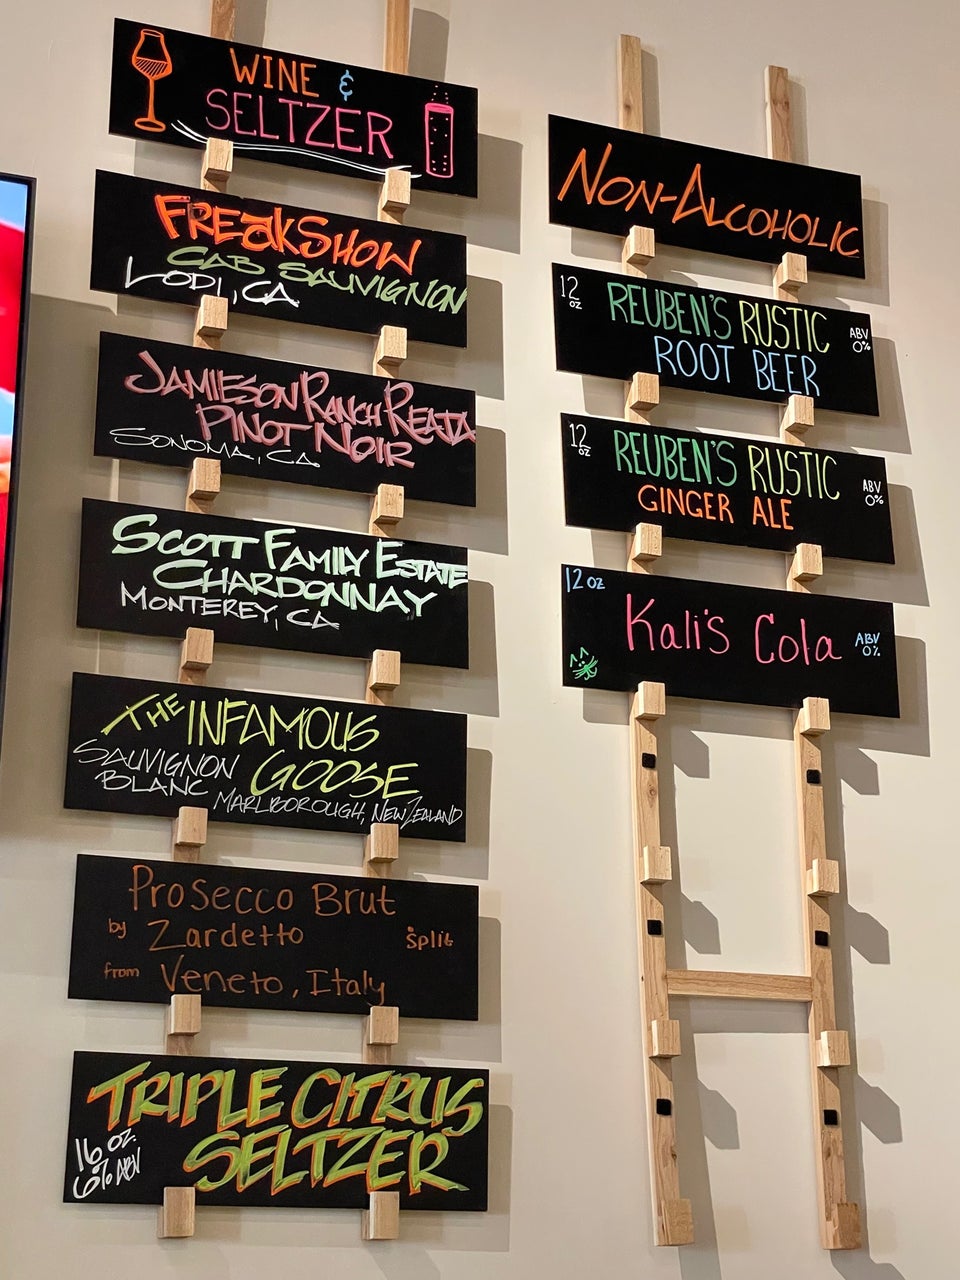 WINE &
SELTZER
FREAKSHOW
CAB SAUVIGNON
LODI, CA
JAMIESON RANCH REATA
PINOT NOIR
SONOMA, CA
SCOTT FAMILY ESTATE
CHARDONNAY
MONTEREY, CA
THE INFAMOUS
GOOSE
SAUVIGNON
BLANC
MARLBOROUGH, NEW ZEALAND
Prosecco Brut
by Zardetto
split
from Veneto, Italy
TRIPLE CITRUS
SELTZER
16 OZ.
6% ABV
NON-ALCOHOLIC
12 OZ
REUBEN'S RUSTIC
ROOT BEER
ABV
0%
12 OZ
REUBEN'S RUSTIC
GINGER ALE
ABV
0%
12 OZ
Kali's Cola
ABV
0%